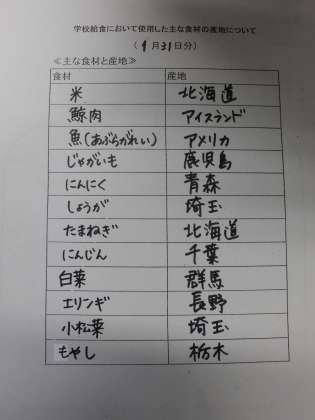 学校給食において使用した主な食材の産地について
(1月31日分)
≪主な食材と産地≫
食材 産地
米 北海道
鯨肉 アイスランド
魚(あぶらがれい) アメリカ
じゃがいも 鹿児島
にんにく 青森
しょうが 埼玉
たまねぎ 北海道
にんじん 千葉
白菜 群馬
エリンギ 長野
小松菜 埼玉
もやし 栃木